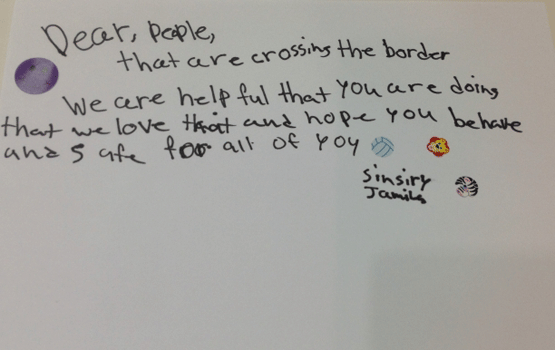 Dear, people,
that are crossing the border
We are help ful that you are doing
that we love that and hope you behave
and safe for all of yoy
Sinsiry
Jamila